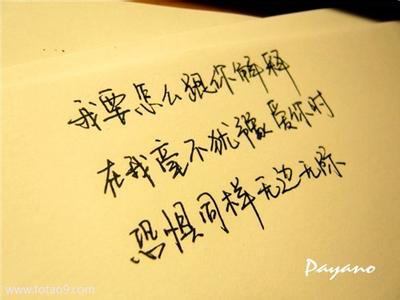 我要怎么跟你解释
在我毫不犹豫爱你时
恐惧同样无边无际
Payano
www.totao9.com